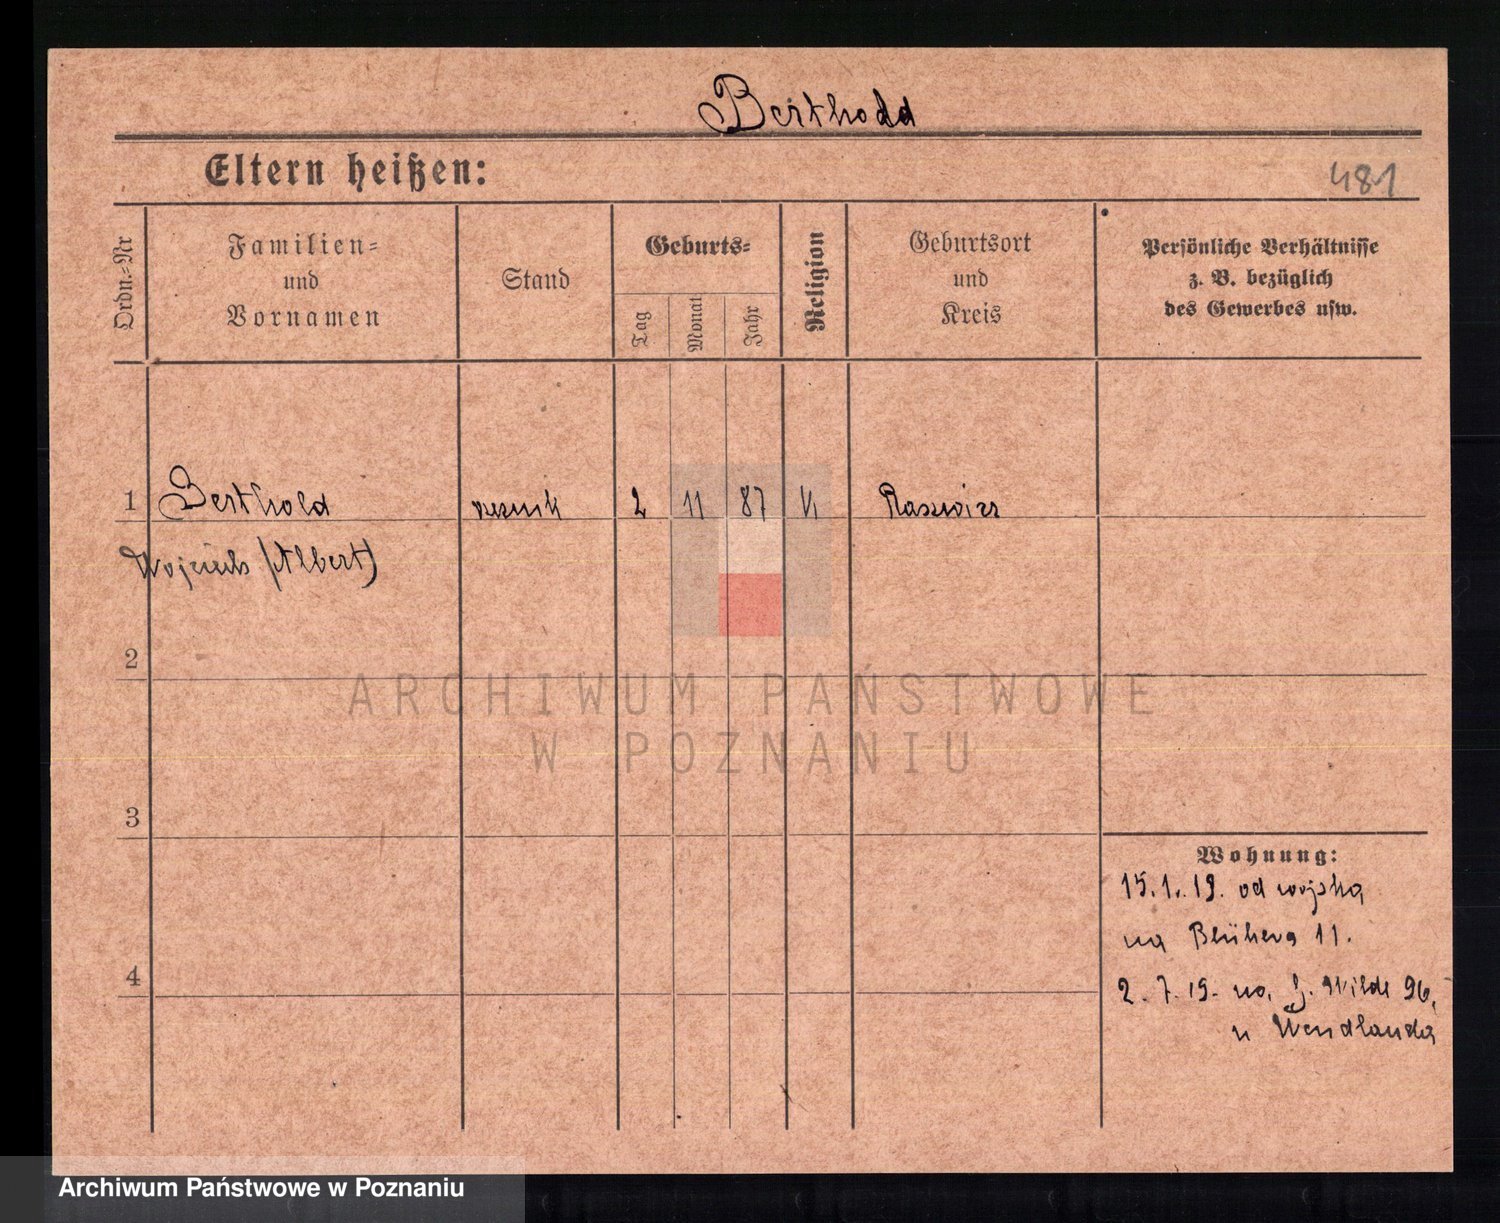 Berthold
Eltern heißen:
481
Ordn.=Nr
Familien=
und
Vornamen
Stand
Geburts=
Tag
Monat
Jahr
Religion
Geburtsort
und
Kreis
Persönliche Verhältnisse
z. B. bezüglich
des Gewerbes usw.
1 Berthold 2 11 87 Raszwicz
Wojciech (Albert)
2
3
4
Wohnung:
15.1.19. od wojska
na Blühera 11.
2.7.19. na G. Wilde 96,
u Wendlanda
ARCHIWUM PAŃSTWOWE
W POZNANIU
Archiwum Państwowe w Poznaniu